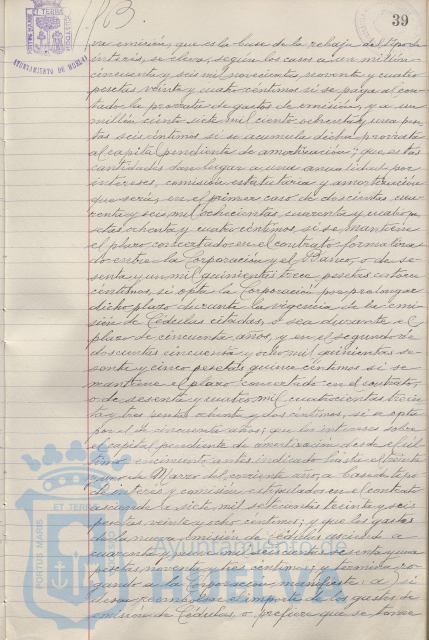 39
AYUNTAMIENTO DE HUELVA
va emisión, que es la base de la rebaja del tipo de
interés, se eleva, según los casos a un millón
cincuenta y seis mil novecientas, noventa y cuatro
pesetas veinte y cuatro céntimos si se paga al con-
tado la prorrata de gastos de emisión, y a un
millón ciento siete mil ciento ochenta y una pese-
tas seis céntimos si se acumula dicha prorrata
al capital pendiente de amortización; que estas
cantidades dan lugar a una anualidad por
intereses, comisión estatutaria y amortización
que sería, en el primer caso de doscientas cua-
renta y seis mil ochocientas, cuarenta y cuatro pe-
setas ochenta y cuatro céntimos, si se mantiene
el plazo concertado en el contrato formaliza-
do entre la Corporación y el Banco, o de se-
senta y un mil quinientas trece pesetas catorce
céntimos, si opta la Corporación por prolongar
dicho plazo durante la vigencia de la emi-
sión de Cédulas citadas, o sea durante el
plazo de cincuenta años, y en el segundo de
doscientas cincuenta y ocho mil quinientas se-
senta y cinco pesetas quince céntimos si se
mantiene el plazo concertado en el contrato,
o de sesenta y cuatro mil cuatrocientas trein-
ta y tres pesetas ochenta y dos céntimos, si se opta
por el de cincuenta años; que los intereses sobre
el capital pendiente de amortización desde el úl-
timo vencimiento antes indicado hasta el treinta
y uno de Marzo del corriente año, a base de tipo
de interés y comisión estipulados en el contrato
asciende a siete mil setecientas treinta y seis
pesetas veinte y ocho céntimos; y que los gastos
de la nueva emisión de cédulas asciende a
cuarenta y nueve mil seiscientas sesenta y una
pesetas, noventa y tres céntimos; y termina ro-
gando a la Corporación manifieste: a) si
desea reembolsar el importe de los gastos de
emisión de Cédulas, o prefiere que se tome
PORTUS MARIS
ET TERRAE
Ayuntamiento de
HUELVA